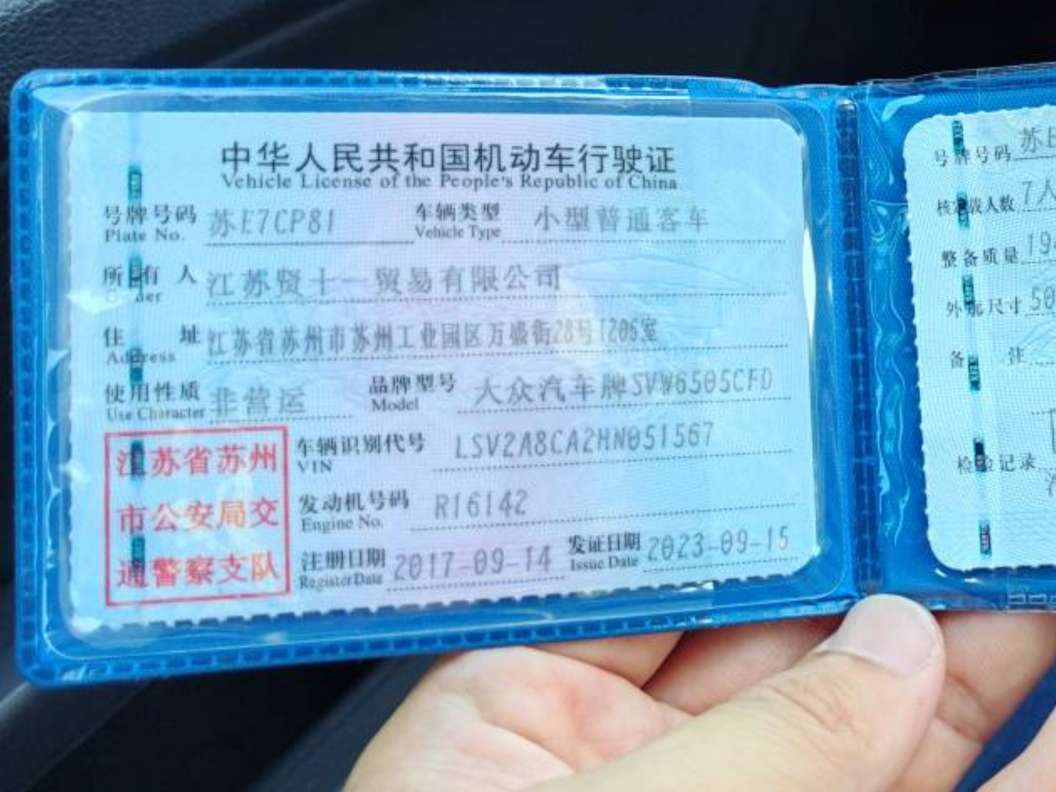 中华人民共和国机动车行驶证
Vehicle License of the People's Republic of China
号牌号码 苏E7CP81 车辆类型 小型普通客车
Plate No. Vehicle Type
所有人 江苏贤十一贸易有限公司
住址 江苏省苏州市苏州工业园区万盛街28号1206室
Address
使用性质 非营运 品牌型号 大众汽车牌SVW6505CFD
Use Character Model
江苏省苏州
市公安局交
通警察支队
车辆识别代号 LSV2A8CA2HN051567
VIN
发动机号码 R16142
Engine No.
注册日期 2017-09-14 发证日期 2023-09-15
Register Date Issue Date
号牌号码 苏E
核定载人数 7人
整备质量 19
外廓尺寸 50
备注
检验记录